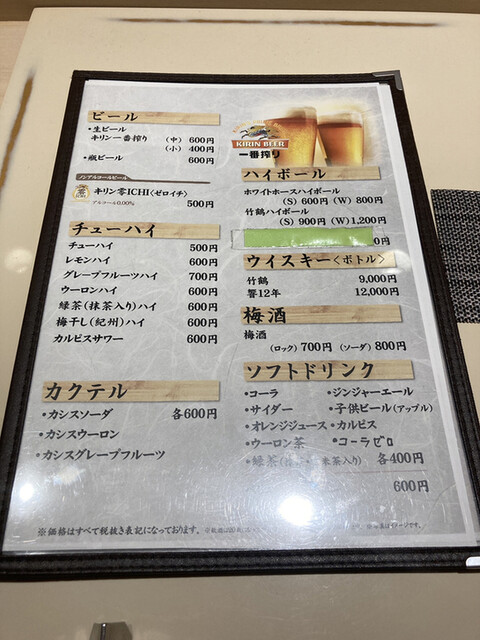 ビール
・生ビール
キリン一番搾り (中) 600円
(小) 400円
・瓶ビール 600円
ノンアルコールビール
キリン零ICHI〈ゼロイチ〉
アルコール0.00% 500円
チューハイ
チューハイ 500円
レモンハイ 600円
グレープフルーツハイ 700円
ウーロンハイ 600円
緑茶(抹茶入り)ハイ 600円
梅干し(紀州)ハイ 600円
カルピスサワー 600円
カクテル
・カシスソーダ 各600円
・カシスウーロン
・カシスグレープフルーツ
KIRIN BEER
一番搾り
ハイボール
ホワイトホースハイボール
(S) 600円 (W) 800円
竹鶴ハイボール
(S) 900円 (W) 1,200円
0円
ウイスキー〈ボトル〉
竹鶴 9,000円
響12年 12,000円
梅酒
梅酒
(ロック) 700円 (ソーダ) 800円
ソフトドリンク
・コーラ ・ジンジャーエール
・サイダー ・子供ビール(アップル)
・オレンジジュース ・カルピス
・ウーロン茶 ・コーラゼロ
・緑茶 茶入り) 各400円
600円
※価格はすべて税抜き表記になっております。